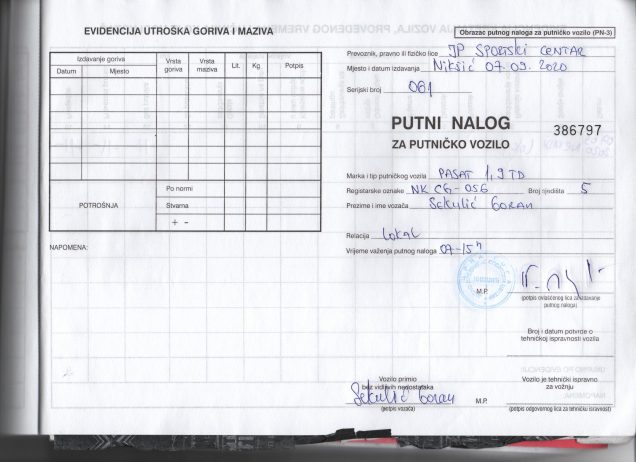 EVIDENCIJA UTROŠKA GORIVA I MAZIVA
Izdavanje goriva
Datum
Mjesto
Vrsta goriva
Vrsta maziva
Lit.
Kg.
Potpis
POTROŠNJA
Po normi
Stvarna
+ -
NAPOMENA:
Obrazac putnog naloga za putničko vozilo (PN-3)
Prevoznik, pravno ili fizičko lice JP SPORTSKI CENTAR
Mjesto i datum izdavanja Nikšić 07.09.2020
Serijski broj 061
PUTNI NALOG
ZA PUTNIČKO VOZILO
386797
Marka i tip putničkog vozila PASAT 1,9 TD
Registarske oznake NK CG-056 Broj sjedišta 5
Prezime i ime vozača Sekulić Goran
Relacija Lokal
Vrijeme važenja putnog naloga 07-15 h
M.P.
(potpis ovlašćenog lica za izdavanje
putnog naloga)
Broj i datum potvrde o
tehničkoj ispravnosti vozila
Vozilo primio
bez vidljivih nedostataka
Sekulić Goran
(potpis vozača)
M.P.
Vozilo je tehnički ispravno
za vožnju
(potpis odgovornog lica za tehničku ispravnost)